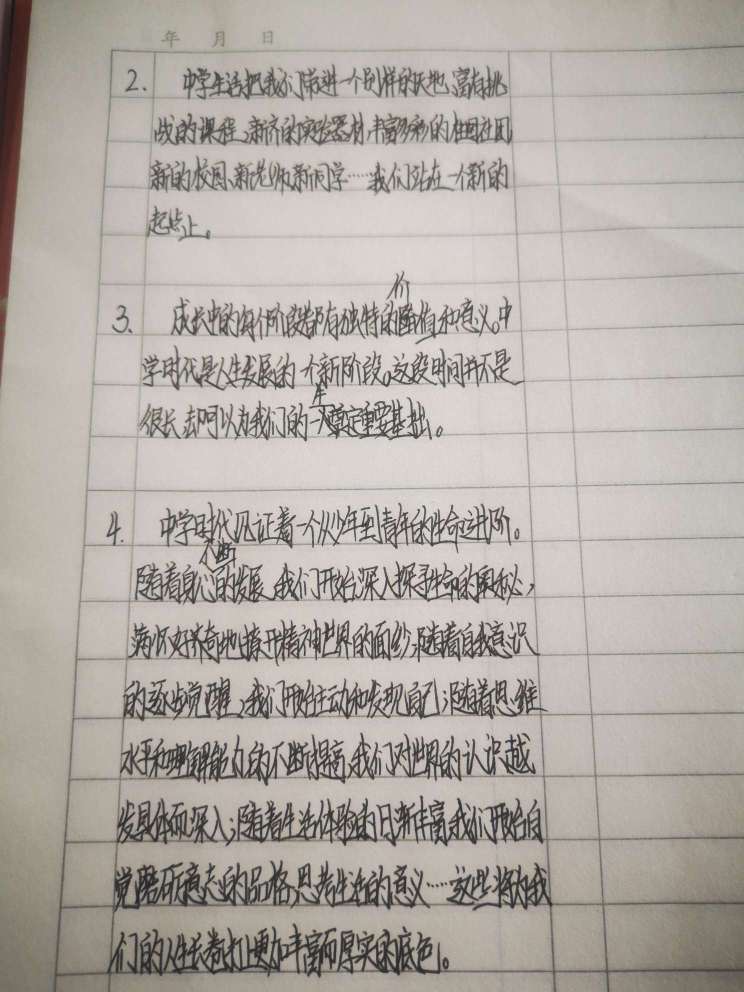 年 月 日
2. 中学生活把我们带进一个别样的天地,富有挑
战的课程,新齐的实验器材,丰富多彩的校园社团
新的校园、新老师、新同学……我们站在一个新的
起点上。
价
3. 成长中的每个阶段都有独特的值和意义。中
学时代是人生发展的一个新阶段。这段时间并不是
生
很长,却可以为我们的一奠定重要基础。
4. 中学时代见证着一个从少年到青年的生命进阶。
不断
随着身心的发展,我们开始深入探寻生命的奥秘,
满怀好奇地揭开精神世界的面纱;随着自我意识
的逐步觉醒,我们开始主动和发现自己;随着思维
水平和理解能力的不断提高,我们对世界的认识越
发具体而深入;随着生活体验的日渐丰富,我们开始自
觉磨砺意志的品格,思考生活的意义……这些将为我
们的人生长卷打上更加丰富而厚实的底色。